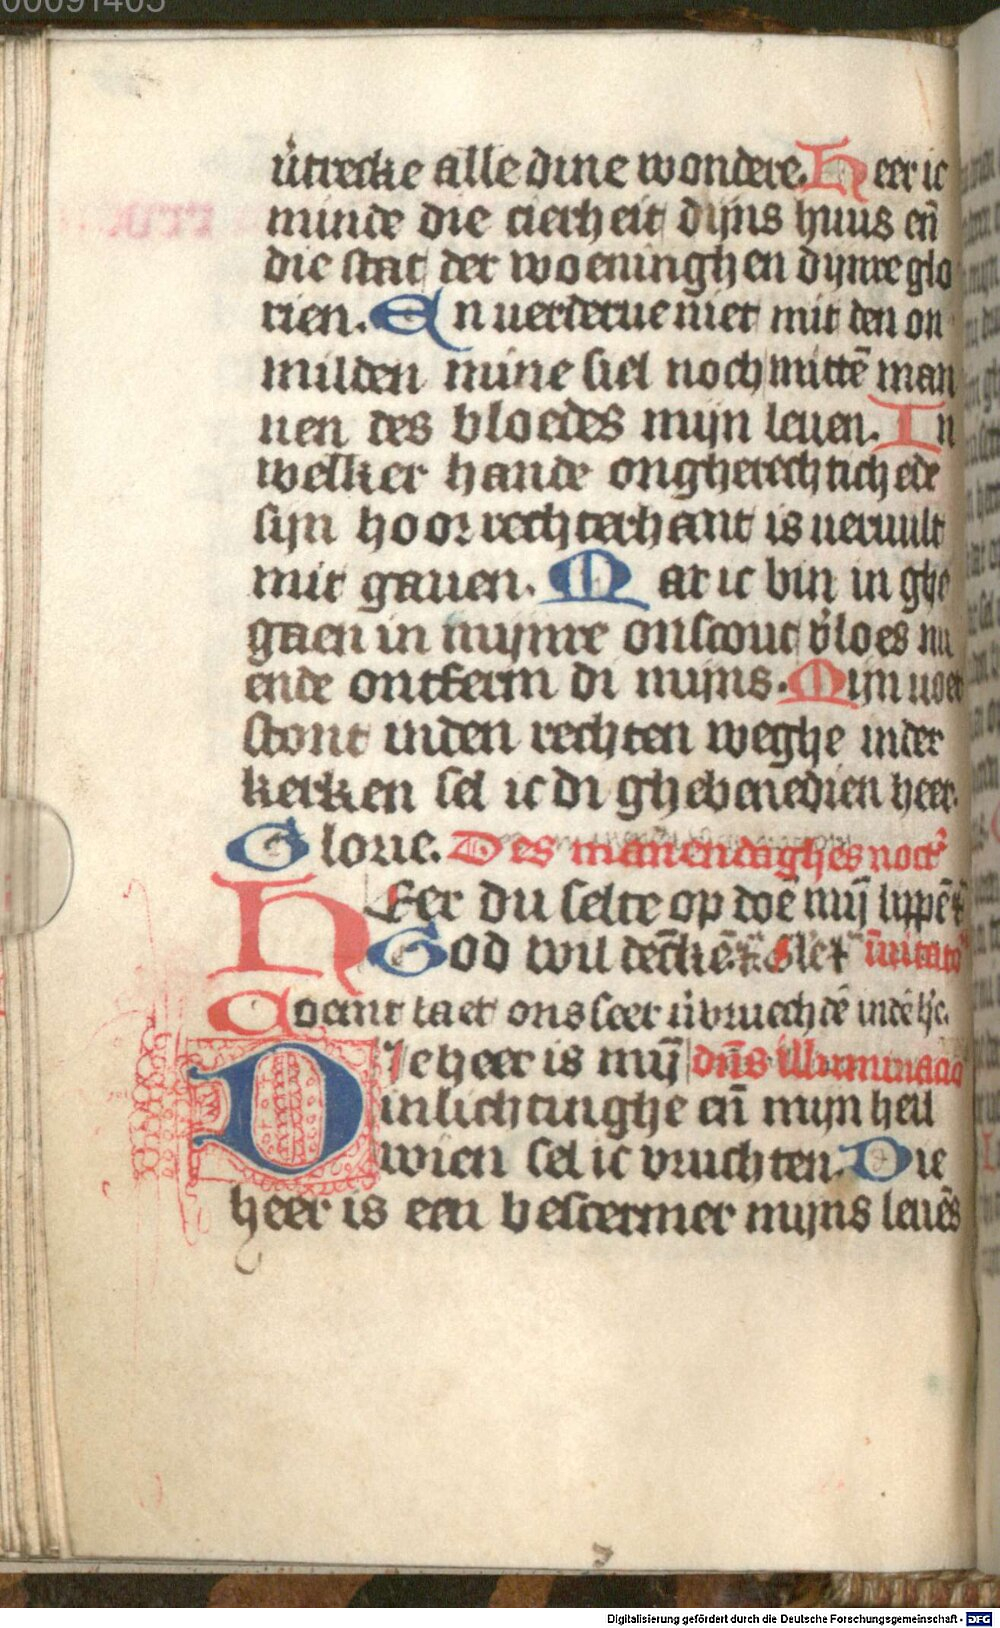 00091405
ůtrecke alle dine wondere. Heer ic
minde die cierheit dijns huus eñ
die stat der woeninghen dijnre glo
rien. En verderve niet mit den on
milden mine siel noch mittē man
nen des bloedes mijn leven. In
welker hande ongherechtichede
sijn hoor rechterhant is vervult
mit gaven. Mar ic bin in ghe
gaen in mijnre onscout v̓loes mi
ende ontferm di mijns. Mijn voet
stont inden rechten weghe inder
kerken sel ic di ghebenedien heer.
Glorie. Des manendaghes noct̓
Heer du selte op doē mij̄ lippē
God wil dēckē glet īvitatō
Coemt laet ons seer v̓vruechdē indē h̓c.
Die heer is mij̄ dn̄s illuminacio
inlichtinghe eñ mijn heil
wien sel ic vruchten. Die
heer is een bescermer mijns levēs
Digitalisierung gefördert durch die Deutsche Forschungsgemeinschaft - DFG